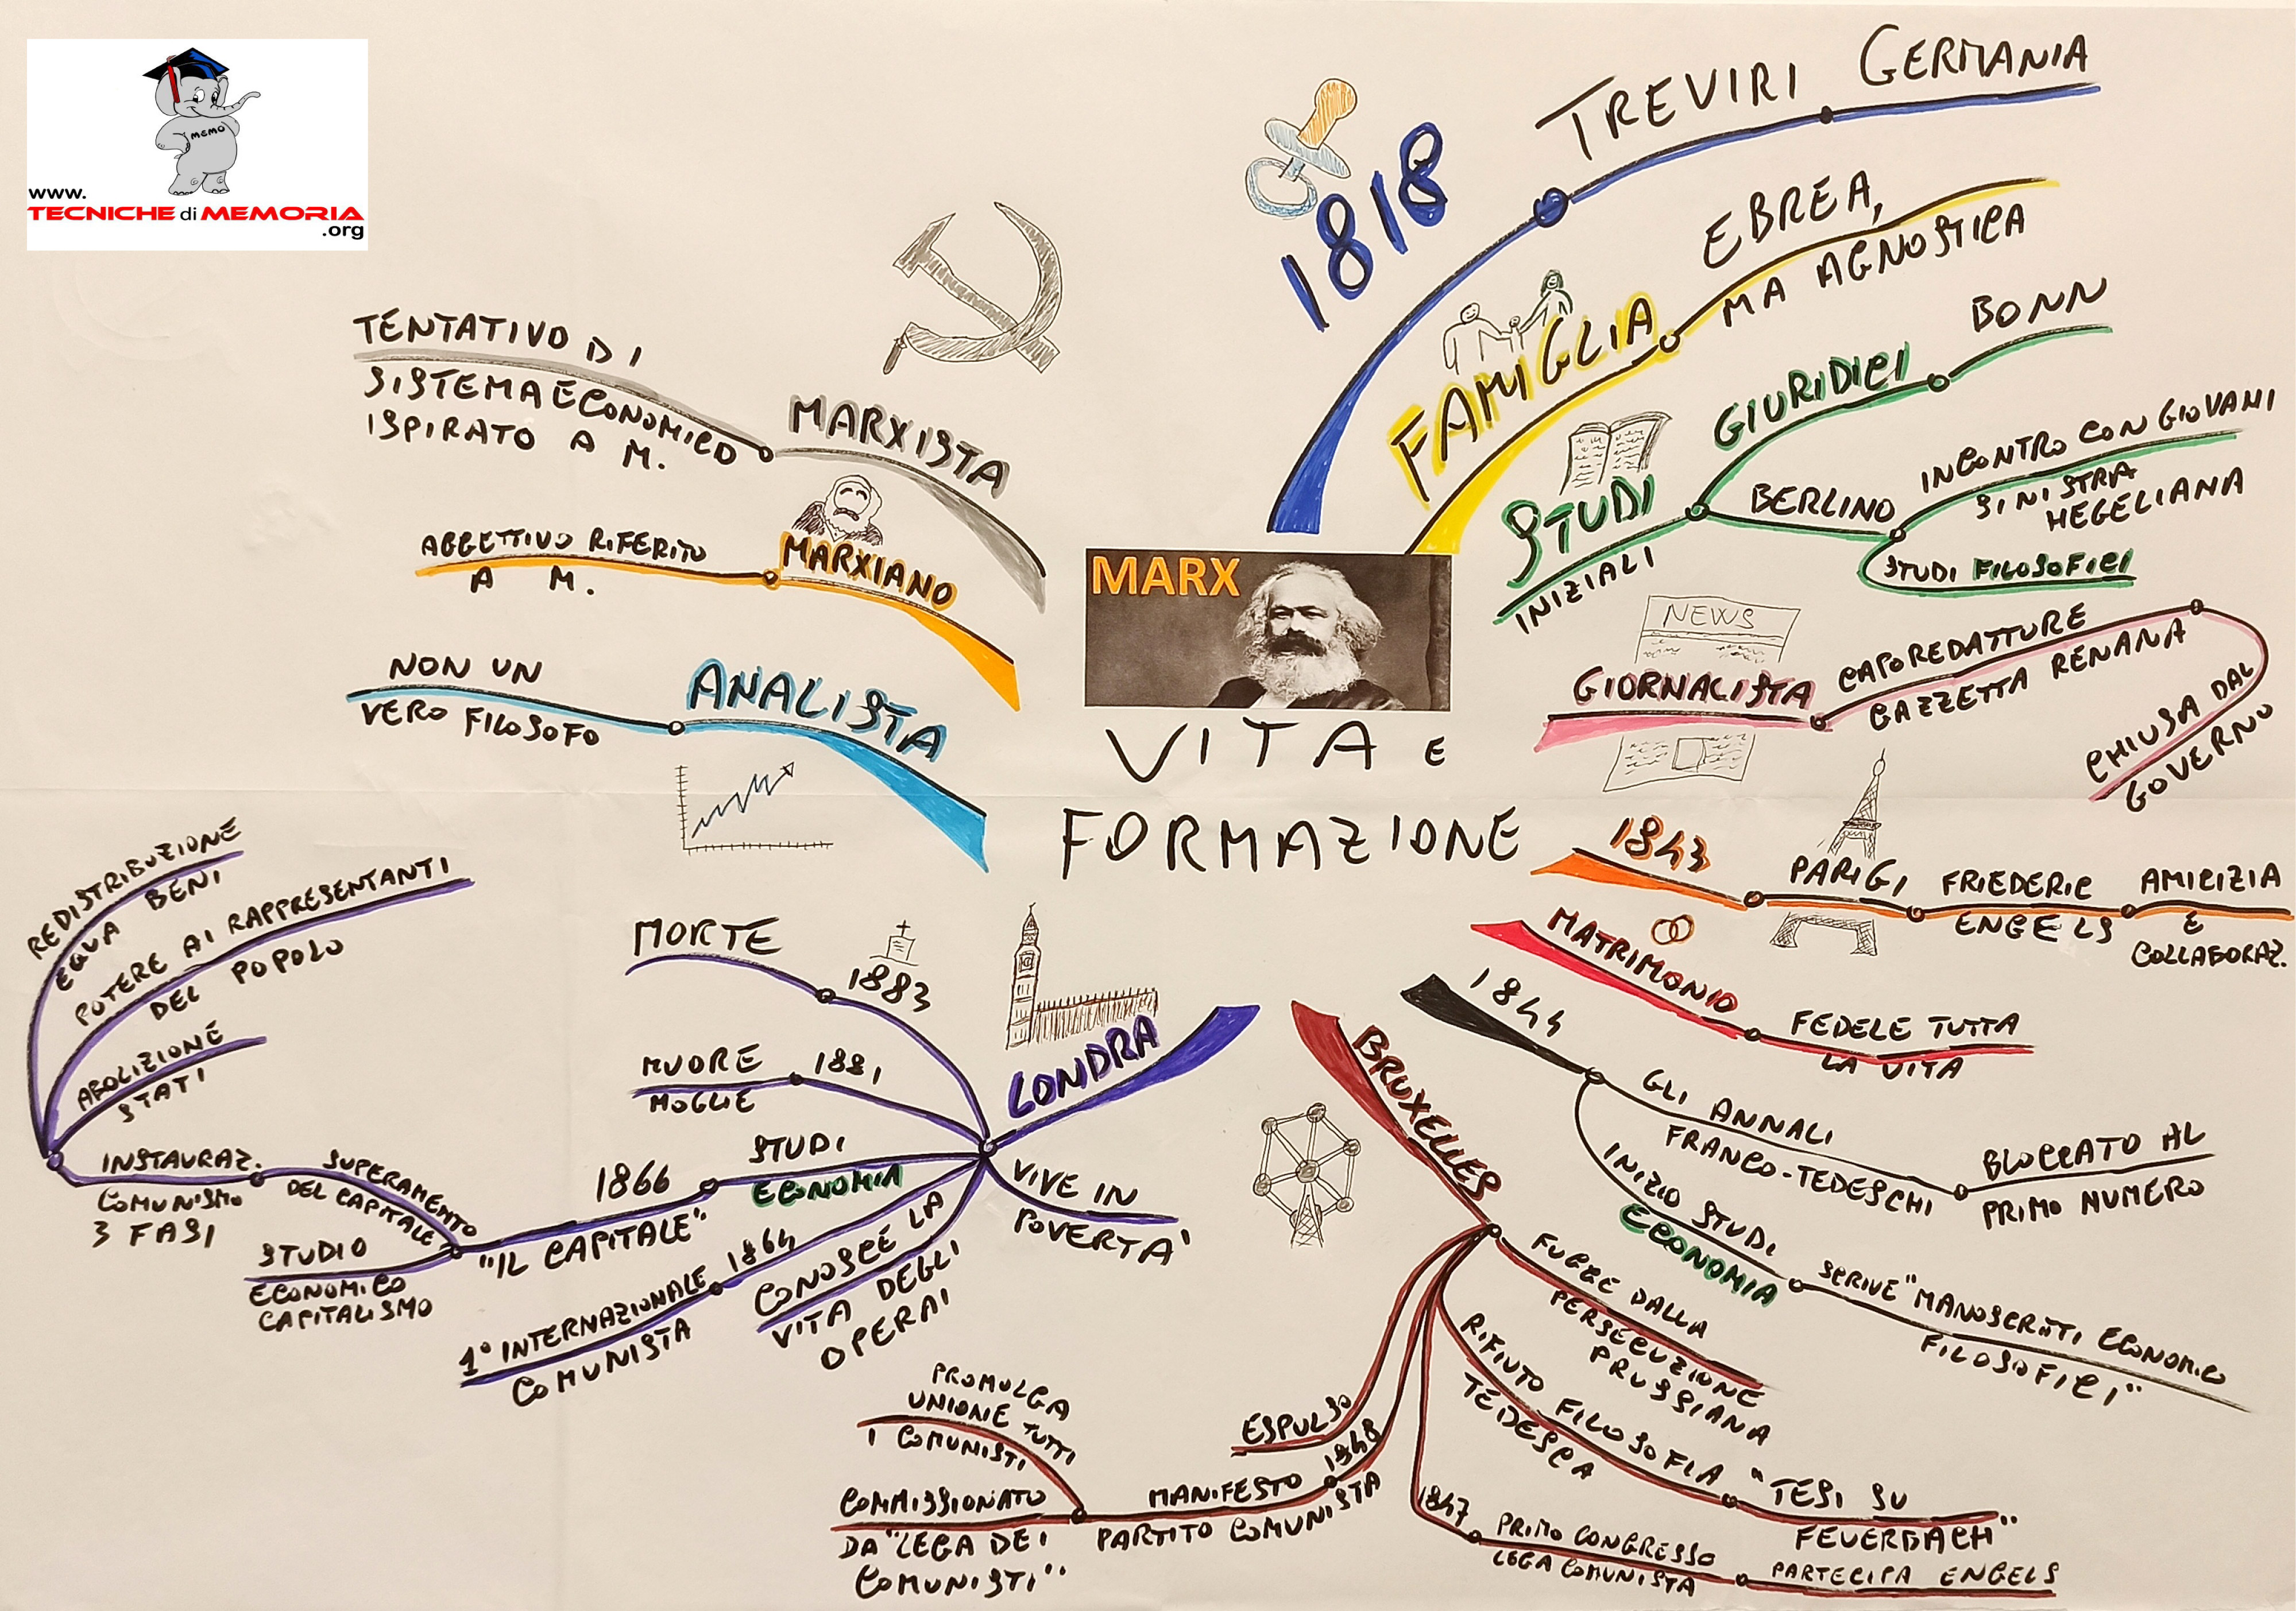 MEMO
www.
TECNICHE di MEMORIA
.org
1818
TREVIRI GERMANIA
FAMIGLIA
EBREA,
MA AGNOSTICA
STUDI
INIZIALI
GIURIDICI
BONN
BERLINO
INCONTRO CON GIOVANI
SINISTRA
HEGELIANA
STUDI FILOSOFICI
NEWS
GIORNALISTA
CAPOREDATTORE
GAZZETTA RENANA
CHIUSA DAL
GOVERNO
1843
PARIGI
FRIEDERIC
ENGELS
AMICIZIA
E
COLLABORAZ.
MATRIMONIO
FEDELE TUTTA
LA VITA
1844
GLI ANNALI
FRANCO-TEDESCHI
BLOCCATO AL
PRIMO NUMERO
INIZIO STUDI
ECONOMIA
SCRIVE "MANOSCRITTI ECONOMICO
FILOSOFICI"
BRUXELLES
FUGGE DALLA
PERSECUZIONE
PRUSSIANA
RIFIUTO FILOSOFIA
TEDESCA
"TESI SU
FEUERBACH"
1847
PRIMO CONGRESSO
LEGA COMUNISTA
PARTECIPA ENGELS
1848
MANIFESTO
PARTITO COMUNISTA
PROMULGA
UNIONE TUTTI
I COMUNISTI
COMMISSIONATO
DA "LEGA DEI
COMUNISTI"
ESPULSO
LONDRA
VIVE IN
POVERTA'
CONOSCE LA
VITA DEGLI
OPERAI
1864
1° INTERNAZIONALE
COMUNISTA
STUDI
ECONOMIA
1866
"IL CAPITALE"
STUDIO
ECONOMICO
CAPITALISMO
SUPERAMENTO
DEL CAPITALE
INSTAURAZ.
COMUNISMO
3 FASI
ABOLIZIONE
STATI
POTERE AI RAPPRESENTANTI
DEL POPOLO
REDISTRIBUZIONE
EQUA BENI
1881
MUORE
MOGLIE
1883
MORTE
ANALISTA
NON UN
VERO FILOSOFO
MARXIANO
AGGETTIVO RIFERITO
A M.
MARXISTA
TENTATIVO DI
SISTEMA ECONOMICO
ISPIRATO A M.
MARX
VITA E
FORMAZIONE